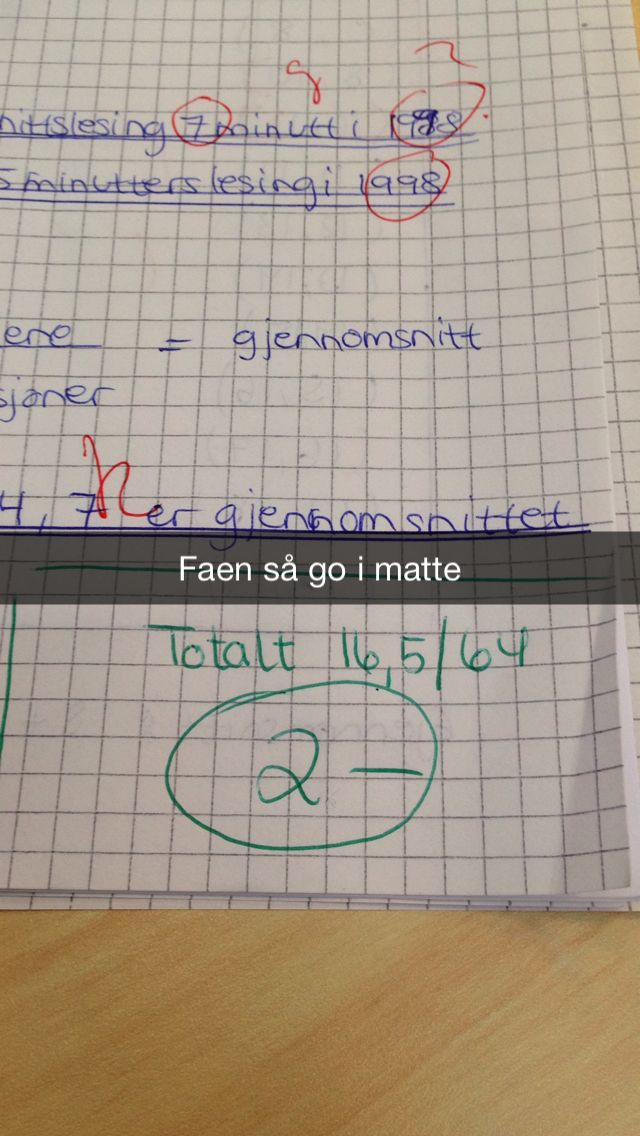 nittslesing 7 minutt i 1998
5 minutters lesing i 1998
ene = gjennomsnitt
sjoner
4,7 er gjennomsnittet
Faen så go i matte
Totalt 16,5/64
2 —